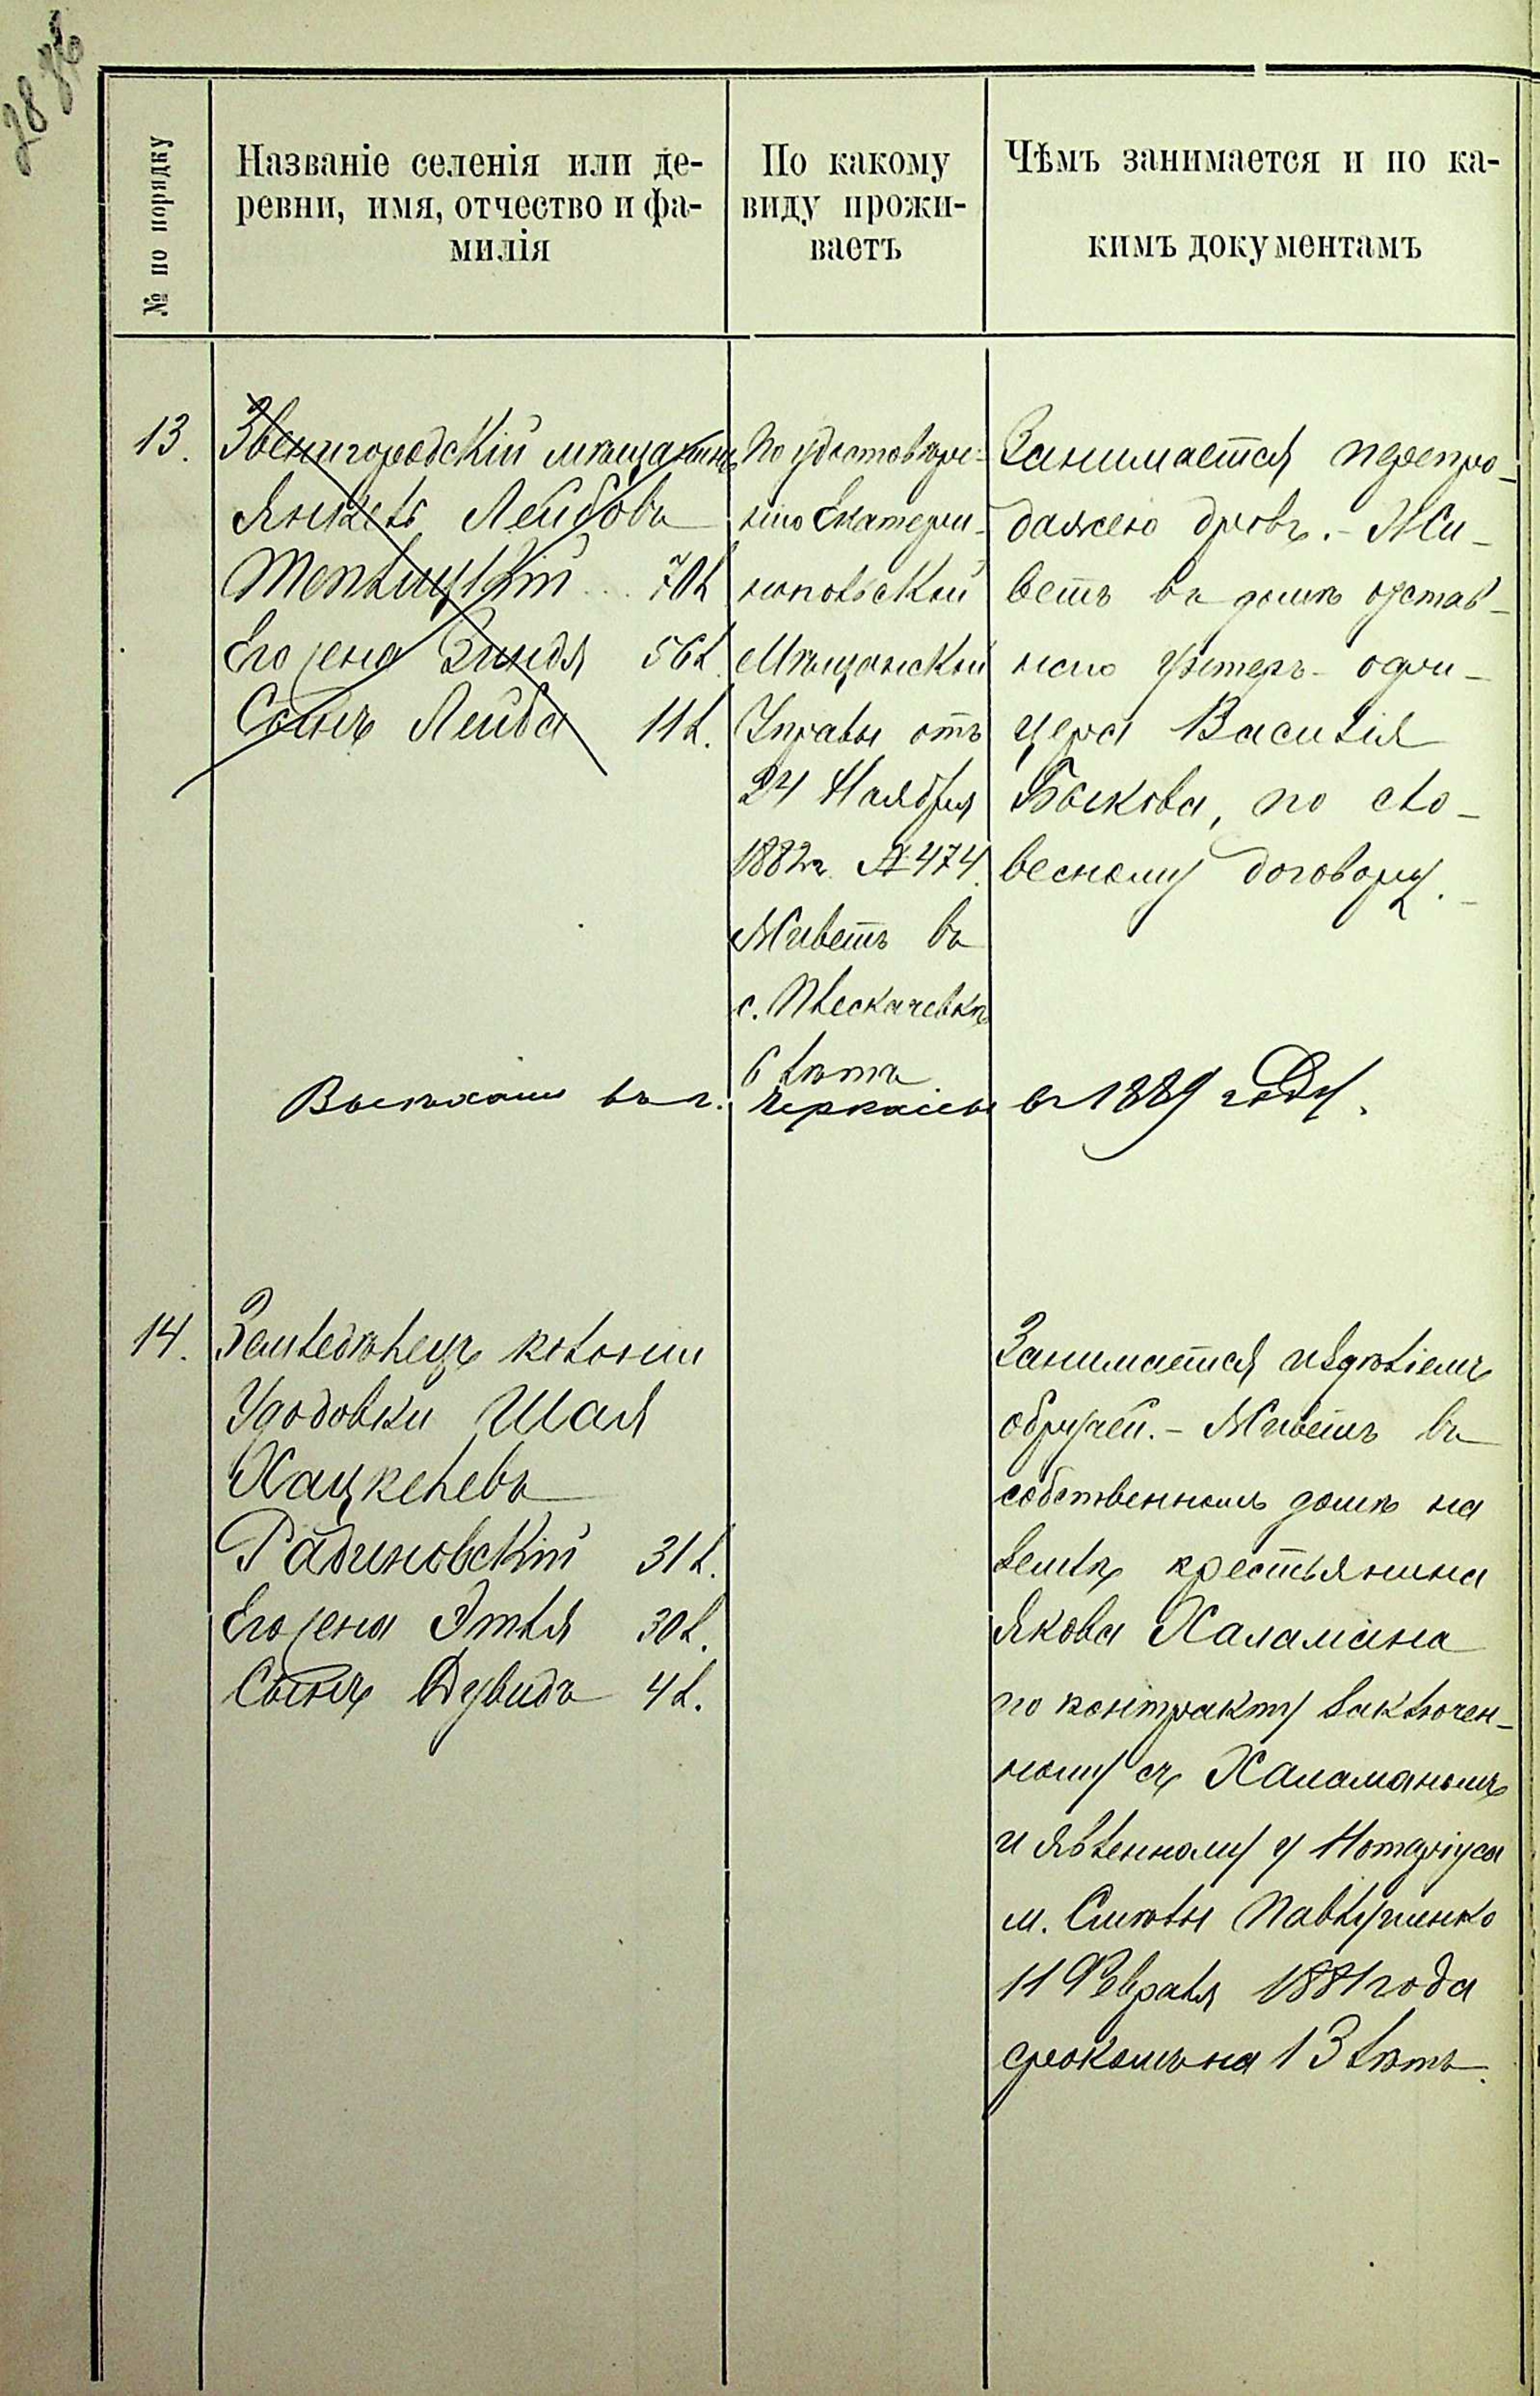 № по порядку
Названіе селенія или де-
ревни, имя, отчество и фа-
милія
По какому
виду прожи-
ваетъ
Чѣмъ занимается и по ка-
кимъ документамъ
13.
Звенигородскій мѣщанинъ
Янкель Лейбовъ
70 л.
Его жена Зиндя 56 л.
Сынъ Лейба 11 л.
По удостовѣре-
нію Екатери-
нопольской
Мѣщанской
Управы отъ
24 Ноября
1882 г. № 474.
Живетъ въ
с. Плескачевкѣ
6 лѣтъ
Занимается перепро-
дажею дровъ. - Жи-
ветъ въ домѣ отстав-
ного унтеръ-офи-
цера Василія
Быкова, по сло-
весному договору. -
Выѣхали въ г. Черкассы въ 1889 году.
14.
Земледѣлецъ колоніи
Шая
Хацкелевъ
Радиновскій 31 л.
Его жена Этля 30 л.
Сынъ Дувидъ 4 л.
Занимается издѣліемъ
обручей. - Живетъ въ
собственномъ домѣ на
землѣ крестьянина
Якова Халамана
по контракту заключен-
ному съ Халаманомъ
и явленному у Нотаріуса
м. Смѣлы
11 Февраля 1881 года
срокомъ на 13 лѣтъ.